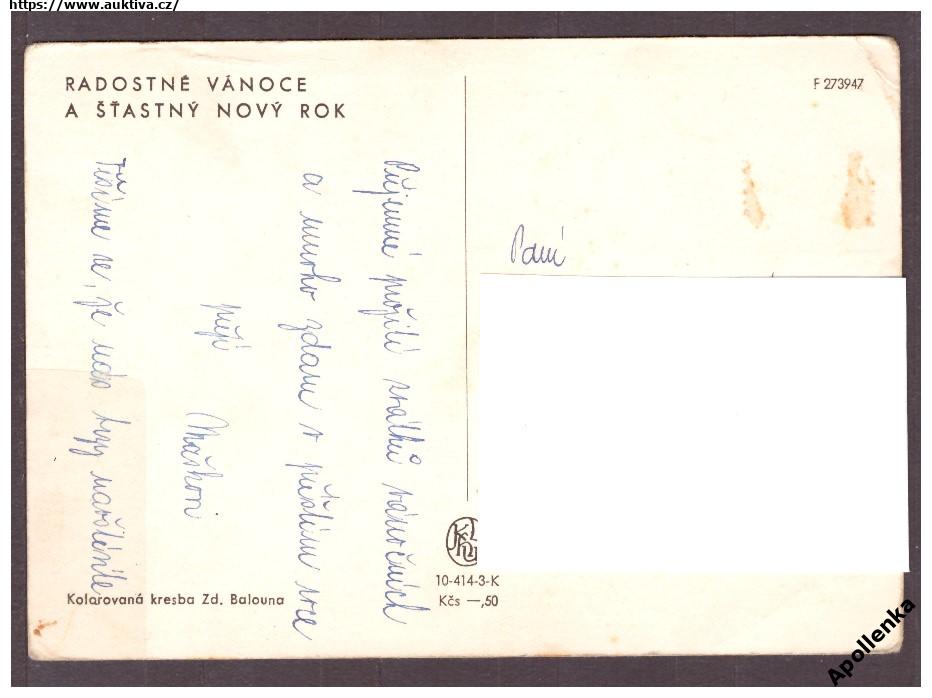 https://www.auktiva.cz/
RADOSTNÉ VÁNOCE
A ŠŤASTNÝ NOVÝ ROK
F 273947
Příjemné prožití svátků vánočních
a mnoho zdaru v příštím roce
přejí
Maškovi
Těšíme se, že nás brzy navštívíte
Paní
10-414-3-K
Kčs —,50
Kolorovaná kresba Zd. Balouna
Apollenka